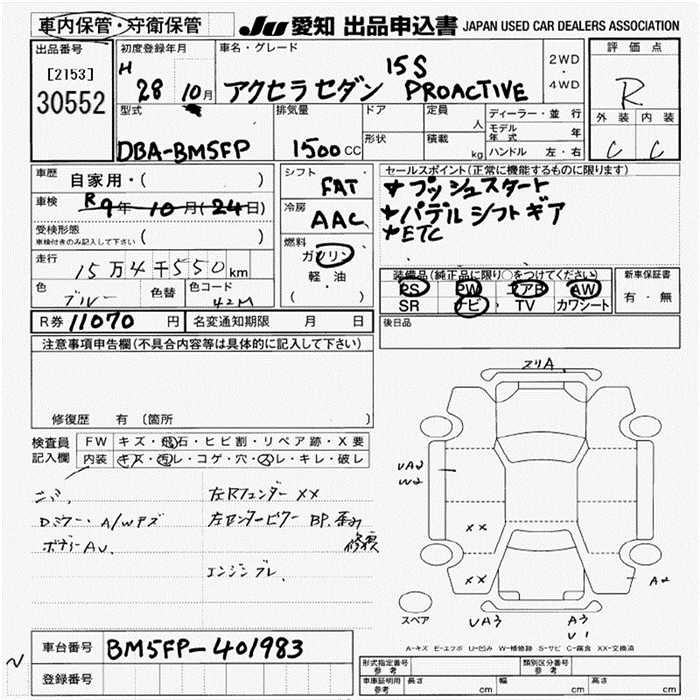 車内保管・守衛保管
JU 愛知 出品申込書 JAPAN USED CAR DEALERS ASSOCIATION
出品番号
[2153]
30552
初度登録年月
H 28 10月
車名・グレード
アクセラセダン 15S PROACTIVE
2WD
・
4WD
評価点
R
外装 内装
C C
型式
DBA-BM5FP
排気量
1500 CC
ドア
形状
定員 人
積載 kg
ディーラー・並行
モデル年式 年
ハンドル 左・右
車歴 自家用・( )
車検 R 9年 10月(24日)
受検形態
車検付きのみ記入して下さい ( )
走行
15万4千550km
色 ブルー 色替 色コード 42M
シフト
FAT
冷房
AAC
燃料
ガソリン
軽・油
( )
セールスポイント(正常に機能するものに限ります)
★プッシュスタート
★パデルシフトギア
★ETC
装備品(純正品に限り○をつけてください)
PS PW エアB AW
SR ナビ・TV カワシート
新車保証書
有・無
R券 11070 円 名変通知期限 月 日
後日品
注意事項申告欄(不具合内容等は具体的に記入して下さい)
修復歴 有 〔箇所 〕
検査員
記入欄
FW キズ・飛石・ヒビ割・リペア跡・X要
内装 キズ・汚レ・コゲ・穴・スレ・キレ・破レ
Dミラー・A/Wキズ
ボデーAU.
左Rフェンダー XX
左センターピラー BP.歪み
修復
エンジンブレ、
スリA
UA2
W2
XX
XX
A2
スペア
UA3
A3
U1
A-キズ E-エクボ U-凹み W-補修跡 S-サビ C-腐食 XX-交換済
車台番号 BM5FP-401983
登録番号
形式指定番号
参考
類別区分番号
参考
車庫証明用
参考
長さ cm 幅 cm 高さ cm